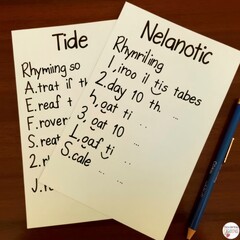 Tide
Rhymiing so
A.trat if th
E.reaf t
F.rover
S.reat
2.r
J.
Nelanotic
Rhynriliing
1,iroo il tis tabes
2.day 10 th. ...
h,oat ti . ..
3, oat 10 ...
L,oaf ti . ..
S.cale ... ...